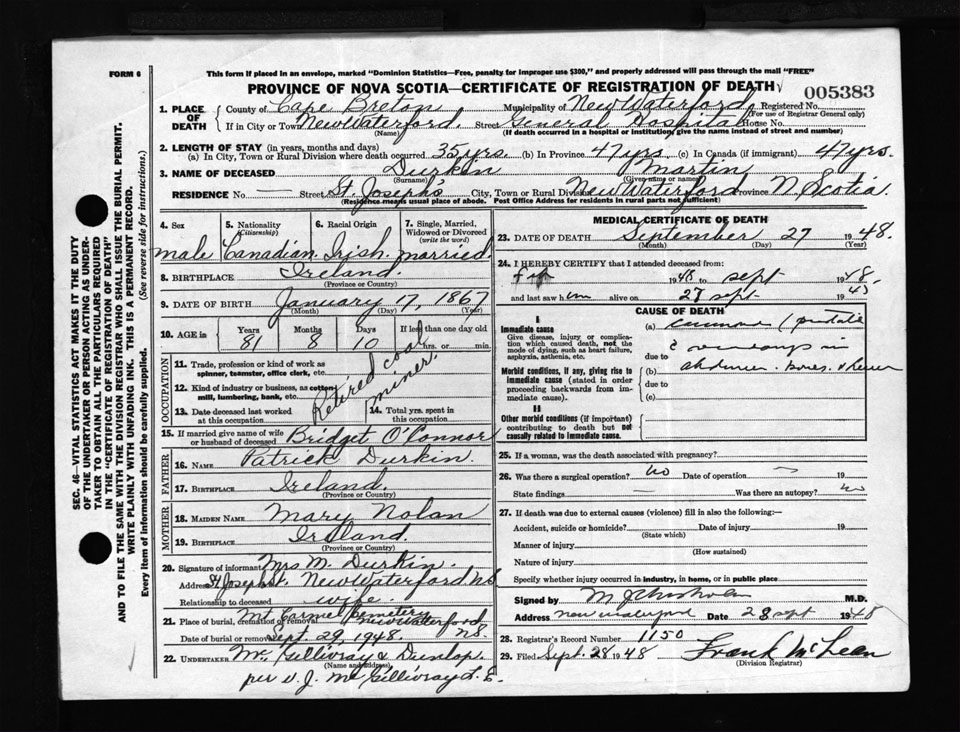 FORM 6
This form if placed in an envelope, marked "Dominion Statistics—Free, penalty for improper use $300," and properly addressed will pass through the mail "FREE"
PROVINCE OF NOVA SCOTIA—CERTIFICATE OF REGISTRATION OF DEATH
005383
1. PLACE OF DEATH
County of Cape Breton Municipality of New Waterford Registered No.
(For use of Registrar General only)
If in City or Town New Waterford. Street General Hospital House No.
(Name) (If death occurred in a hospital or institution, give the name instead of street and number)
2. LENGTH OF STAY (in years, months and days)
(a) In City, Town or Rural Division where death occurred 35 yrs. (b) In Province 47 yrs (c) In Canada (if immigrant) 47 yrs.
3. NAME OF DECEASED Durkin Martin
(Surname) (Given name or names)
RESIDENCE No. — Street St. Joseph's City, Town or Rural Division New Waterford Province N. Scotia.
(Residence means usual place of abode. Post Office Address for residents in rural parts not sufficient)
4. Sex
male
5. Nationality
(Citizenship)
Canadian.
6. Racial Origin
Irish.
7. Single, Married, Widowed or Divorced
(write the word)
married.
8. BIRTHPLACE Ireland.
(Province or Country)
9. DATE OF BIRTH January 17, 1867
(Month) (Day) (Year)
10. AGE in
Years Months Days If less than one day old
81 8 10 hrs. or min.
OCCUPATION
11. Trade, profession or kind of work as spinner, teamster, office clerk, etc.
12. Kind of industry or business, as cotton mill, lumbering, bank, etc.
Retired coal miner.
13. Date deceased last worked at this occupation
14. Total yrs. spent in this occupation
15. If married give name of wife or husband of deceased Bridget O'Connor
FATHER
16. NAME Patrick Durkin.
17. BIRTHPLACE Ireland.
(Province or Country)
MOTHER
18. MAIDEN NAME Mary Nolan
19. BIRTHPLACE Ireland.
(Province or Country)
20. Signature of informant Mrs M. Durkin.
Address St Joseph St. New Waterford N.S
Relationship to deceased wife.
21. Place of burial, cremation or removal Mt Carmel Cemetery New Waterford N.S.
Date of burial or removal Sept. 29, 1948.
22. UNDERTAKER McGillivray & Dunlop
(Name and address)
per V. J. McGillivray L. E.
MEDICAL CERTIFICATE OF DEATH
23. DATE OF DEATH September 27 1948.
(Month) (Day) (Year)
24. I HEREBY CERTIFY that I attended deceased from:
1948 to Sept 1948.
and last saw him alive on 27 Sept 19
CAUSE OF DEATH
I
Immediate cause
Give disease, injury or complication which caused death, not the mode of dying, such as heart failure, asphyxia, asthenia, etc.
(a) prostate
due to
Morbid conditions, if any, giving rise to immediate cause (stated in order proceeding backwards from immediate cause).
(b)
due to
(c)
II
Other morbid conditions (if important) contributing to death but not causally related to immediate cause.
25. If a woman, was the death associated with pregnancy?
26. Was there a surgical operation? No Date of operation — 19
State findings — Was there an autopsy? no
27. If death was due to external causes (violence) fill in also the following:—
Accident, suicide or homicide? Date of injury 19
(State which)
Manner of injury
(How sustained)
Nature of injury
Specify whether injury occurred in industry, in home, or in public place
Signed by M.D.
Address New Waterford Date 28 Sept 1948
28. Registrar's Record Number 1150
29. Filed Sept. 28 1948 Frank McLean
(Division Registrar)
SEC. 46—VITAL STATISTICS ACT MAKES IT THE DUTY
OF THE UNDERTAKER OR PERSON ACTING AS UNDERTAKER TO OBTAIN ALL THE PARTICULARS REQUIRED
IN THE "CERTIFICATE OF REGISTRATION OF DEATH"
AND TO FILE THE SAME WITH THE DIVISION REGISTRAR WHO SHALL ISSUE THE BURIAL PERMIT.
WRITE PLAINLY WITH UNFADING INK. THIS IS A PERMANENT RECORD.
Every item of information should be carefully supplied. (See reverse side for instructions.)